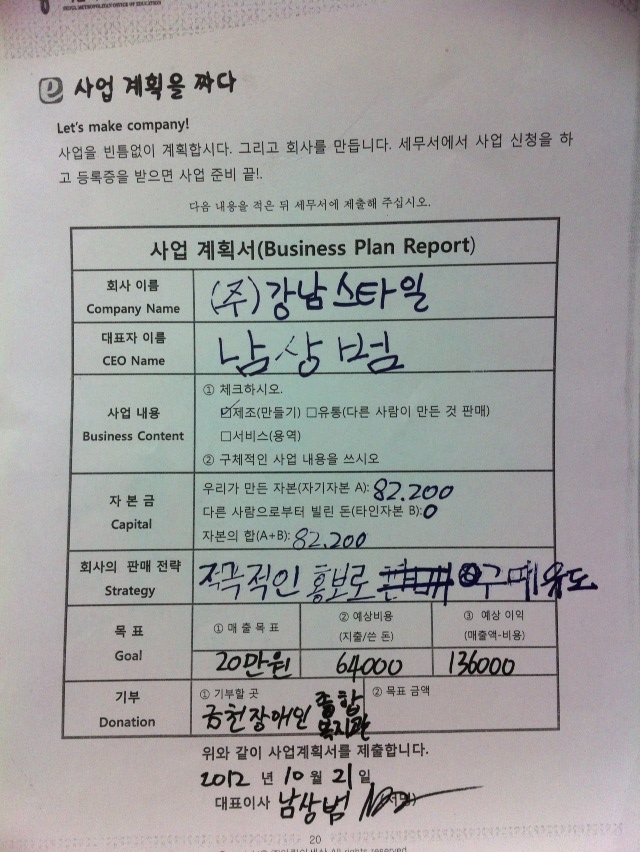 SEOUL METROPOLITAN OFFICE OF EDUCATION
사업 계획을 짜다
Let's make company!
사업을 빈틈없이 계획합시다. 그리고 회사를 만듭니다. 세무서에서 사업 신청을 하
고 등록증을 받으면 사업 준비 끝!.
다음 내용을 적은 뒤 세무서에 제출해 주십시오.
사업 계획서(Business Plan Report)
회사 이름
Company Name
(주)강남스타일
대표자 이름
CEO Name
남상범
사업 내용
Business Content
① 체크하시오.
☑제조(만들기) □유통(다른 사람이 만든 것 판매)
□서비스(용역)
② 구체적인 사업 내용을 쓰시오
자 본 금
Capital
우리가 만든 자본(자기자본 A): 82.200
다른 사람으로부터 빌린 돈(타인자본 B):0
자본의 합(A+B): 82.200
회사의 판매 전략
Strategy
적극적인 홍보로 구매유도
목 표
Goal
① 매 출 목 표
② 예상비용
(지출/쓴 돈)
③ 예상 이익
(매출액-비용)
20만원 64000 136000
기부
Donation
① 기부할 곳
금천장애인 종합
복지관
② 목표 금액
위와 같이 사업계획서를 제출합니다.
2012 년 10 월 21 일
대표이사 남상범
20
All rights reserved